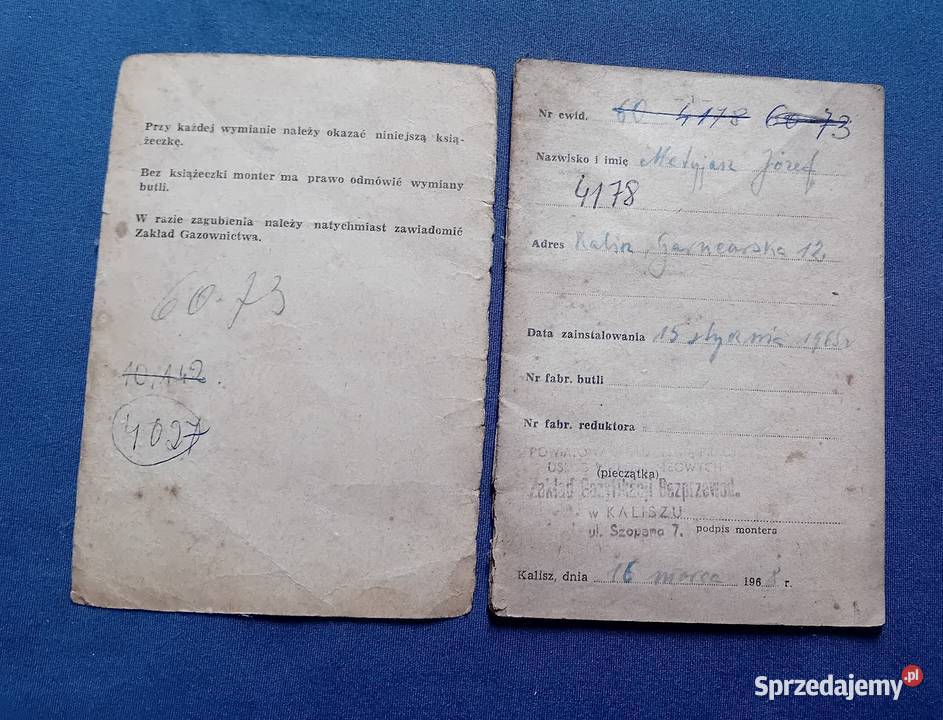 Przy każdej wymianie należy okazać niniejszą ksią-
żeczkę.
Bez książeczki monter ma prawo odmówić wymiany
butli.
W razie zagubienia należy natychmiast zawiadomić
Zakład Gazownictwa.
60-73
10.142.
4027
Nr ewid. 60 4178 60-73
Nazwisko i imię Matyjasz Józef
4178
Adres Kalisz, Garncarska 12.
Data zainstalowania 15 stycznia 1965 r
Nr fabr. butli
Nr fabr. reduktora
(pieczątka)
Zakład Gazyfikacji Bezprzewod.
w KALISZU
ul. Szopena 7. podpis montera
Kalisz, dnia 16 marca 1968 r.
Sprzedajemy.pl